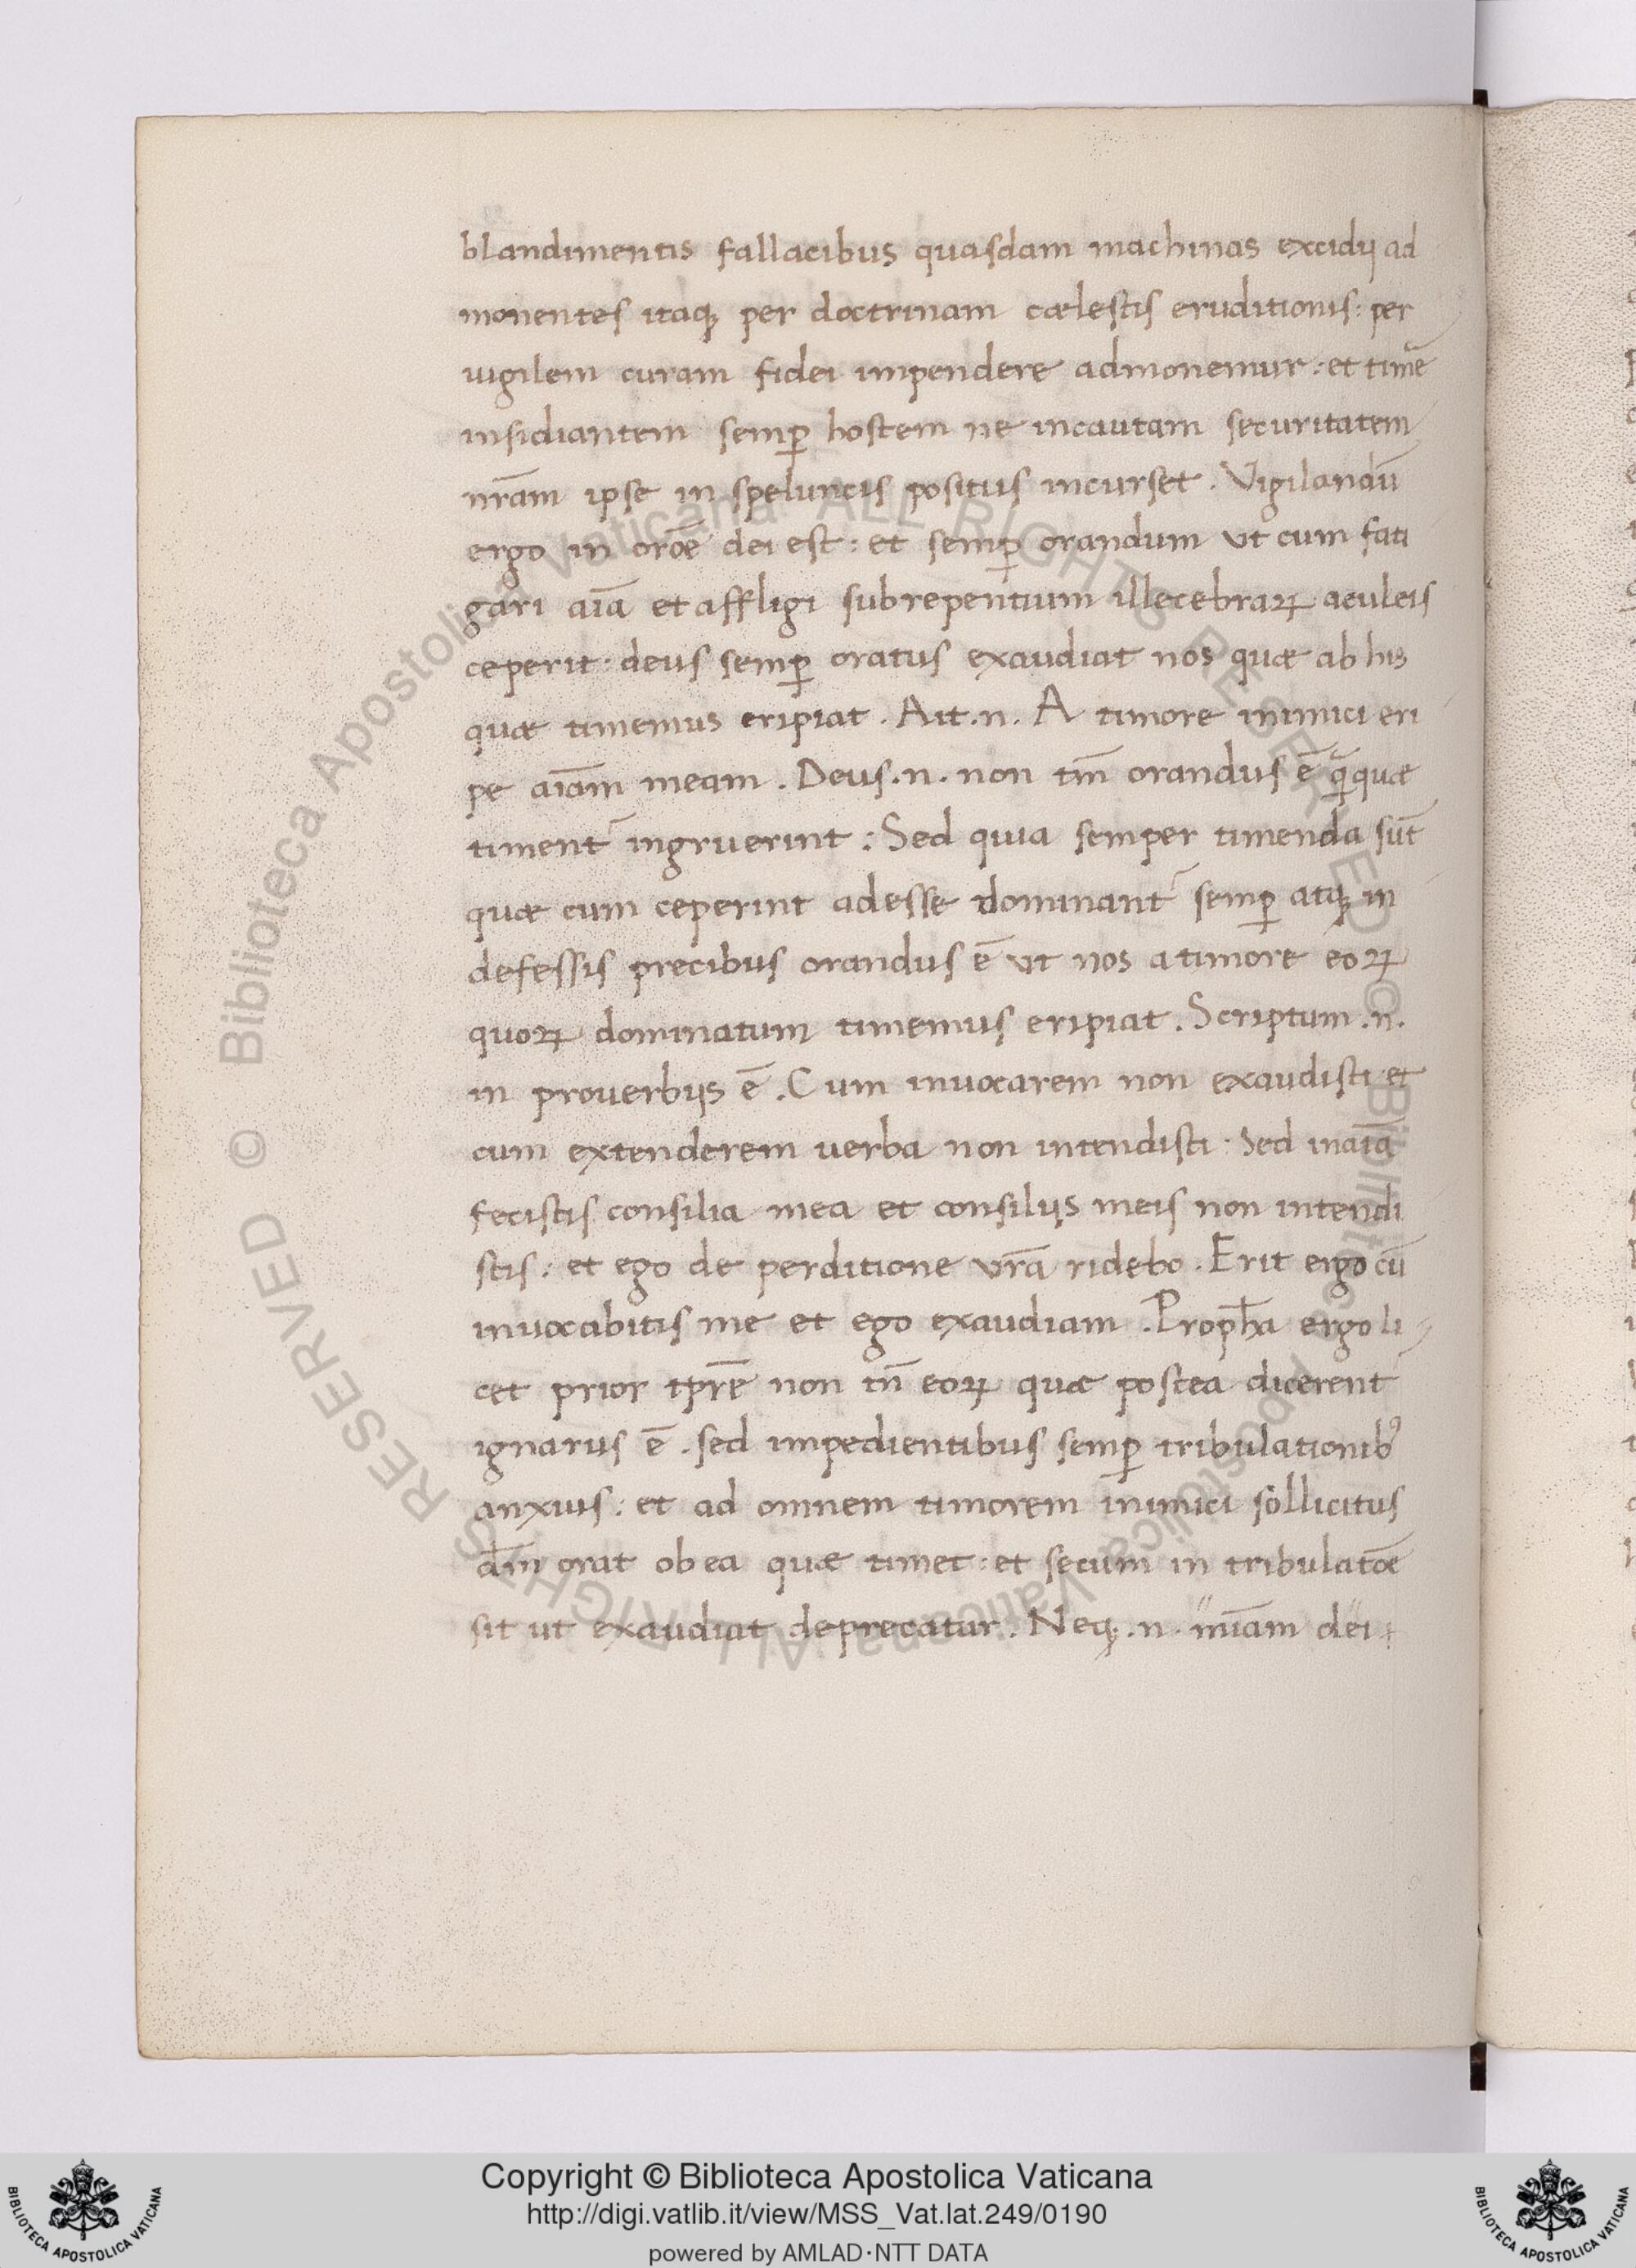 blandimentis fallacibus quasdam machinas excidij ad
monentes itaqꝫ per doctrinam cælestis eruditionis: per
uigilem curam fidei impendere admonemur: et time
insidiantem semꝑ hostem ne incautam securitatem
nr̄am ipse in speluncis positus incurset. Vigilandū
ergo in orōe dei est: et semꝑ orandum ut cum fati
gari aīa et affligi subrepentium illecebraꝝ aculeis
ceperit: deus semꝑ oratus exaudiat nos quæ ab his
quæ timemus eripiat. Ait .n. A timore inimici eri
pe aīam meam. Deus .n. non tm̄ orandus ē quæ
timent᷑ ingruerint: Sed quia semper timenda sūt
quæ cum ceperint adesse dominant᷑ semꝑ atqꝫ in
defessis precibus orandus ē ut nos a timore eoꝝ
quoꝝ dominatum timemus eripiat. Scriptum .n.
in prouerbijs ē. Cum inuocarem non exaudisti et
cum extenderem uerba non intendisti. Sed
fecistis consilia mea et consilijs meis non intendi
stis: et ego de perditione vr̄a ridebo. Erit ergo cū
inuocabitis me et ego exaudiam. Propħa ergo li
cet prior tp̄re non tn̄ eoꝝ quæ postea dicerent
ignarus ē. sed impedientibus semꝑ tribulationibꝰ
anxius: et ad omnem timorem inimici sollicitus
dm̄ orat ob ea quæ timet: et secum in tribulatōe
sit ut exaudiat deprecatur. Neqꝫ .n. dei
© Biblioteca Apostolica Vaticana ALL RIGHTS RESERVED © Biblioteca Apostolica Vaticana ALL RIGHTS RESERVED
Copyright © Biblioteca Apostolica Vaticana
http://digi.vatlib.it/view/MSS_Vat.lat.249/0190
powered by AMLAD·NTT DATA
BIBLIOTECA APOSTOLICA VATICANA
BIBLIOTECA APOSTOLICA VATICANA